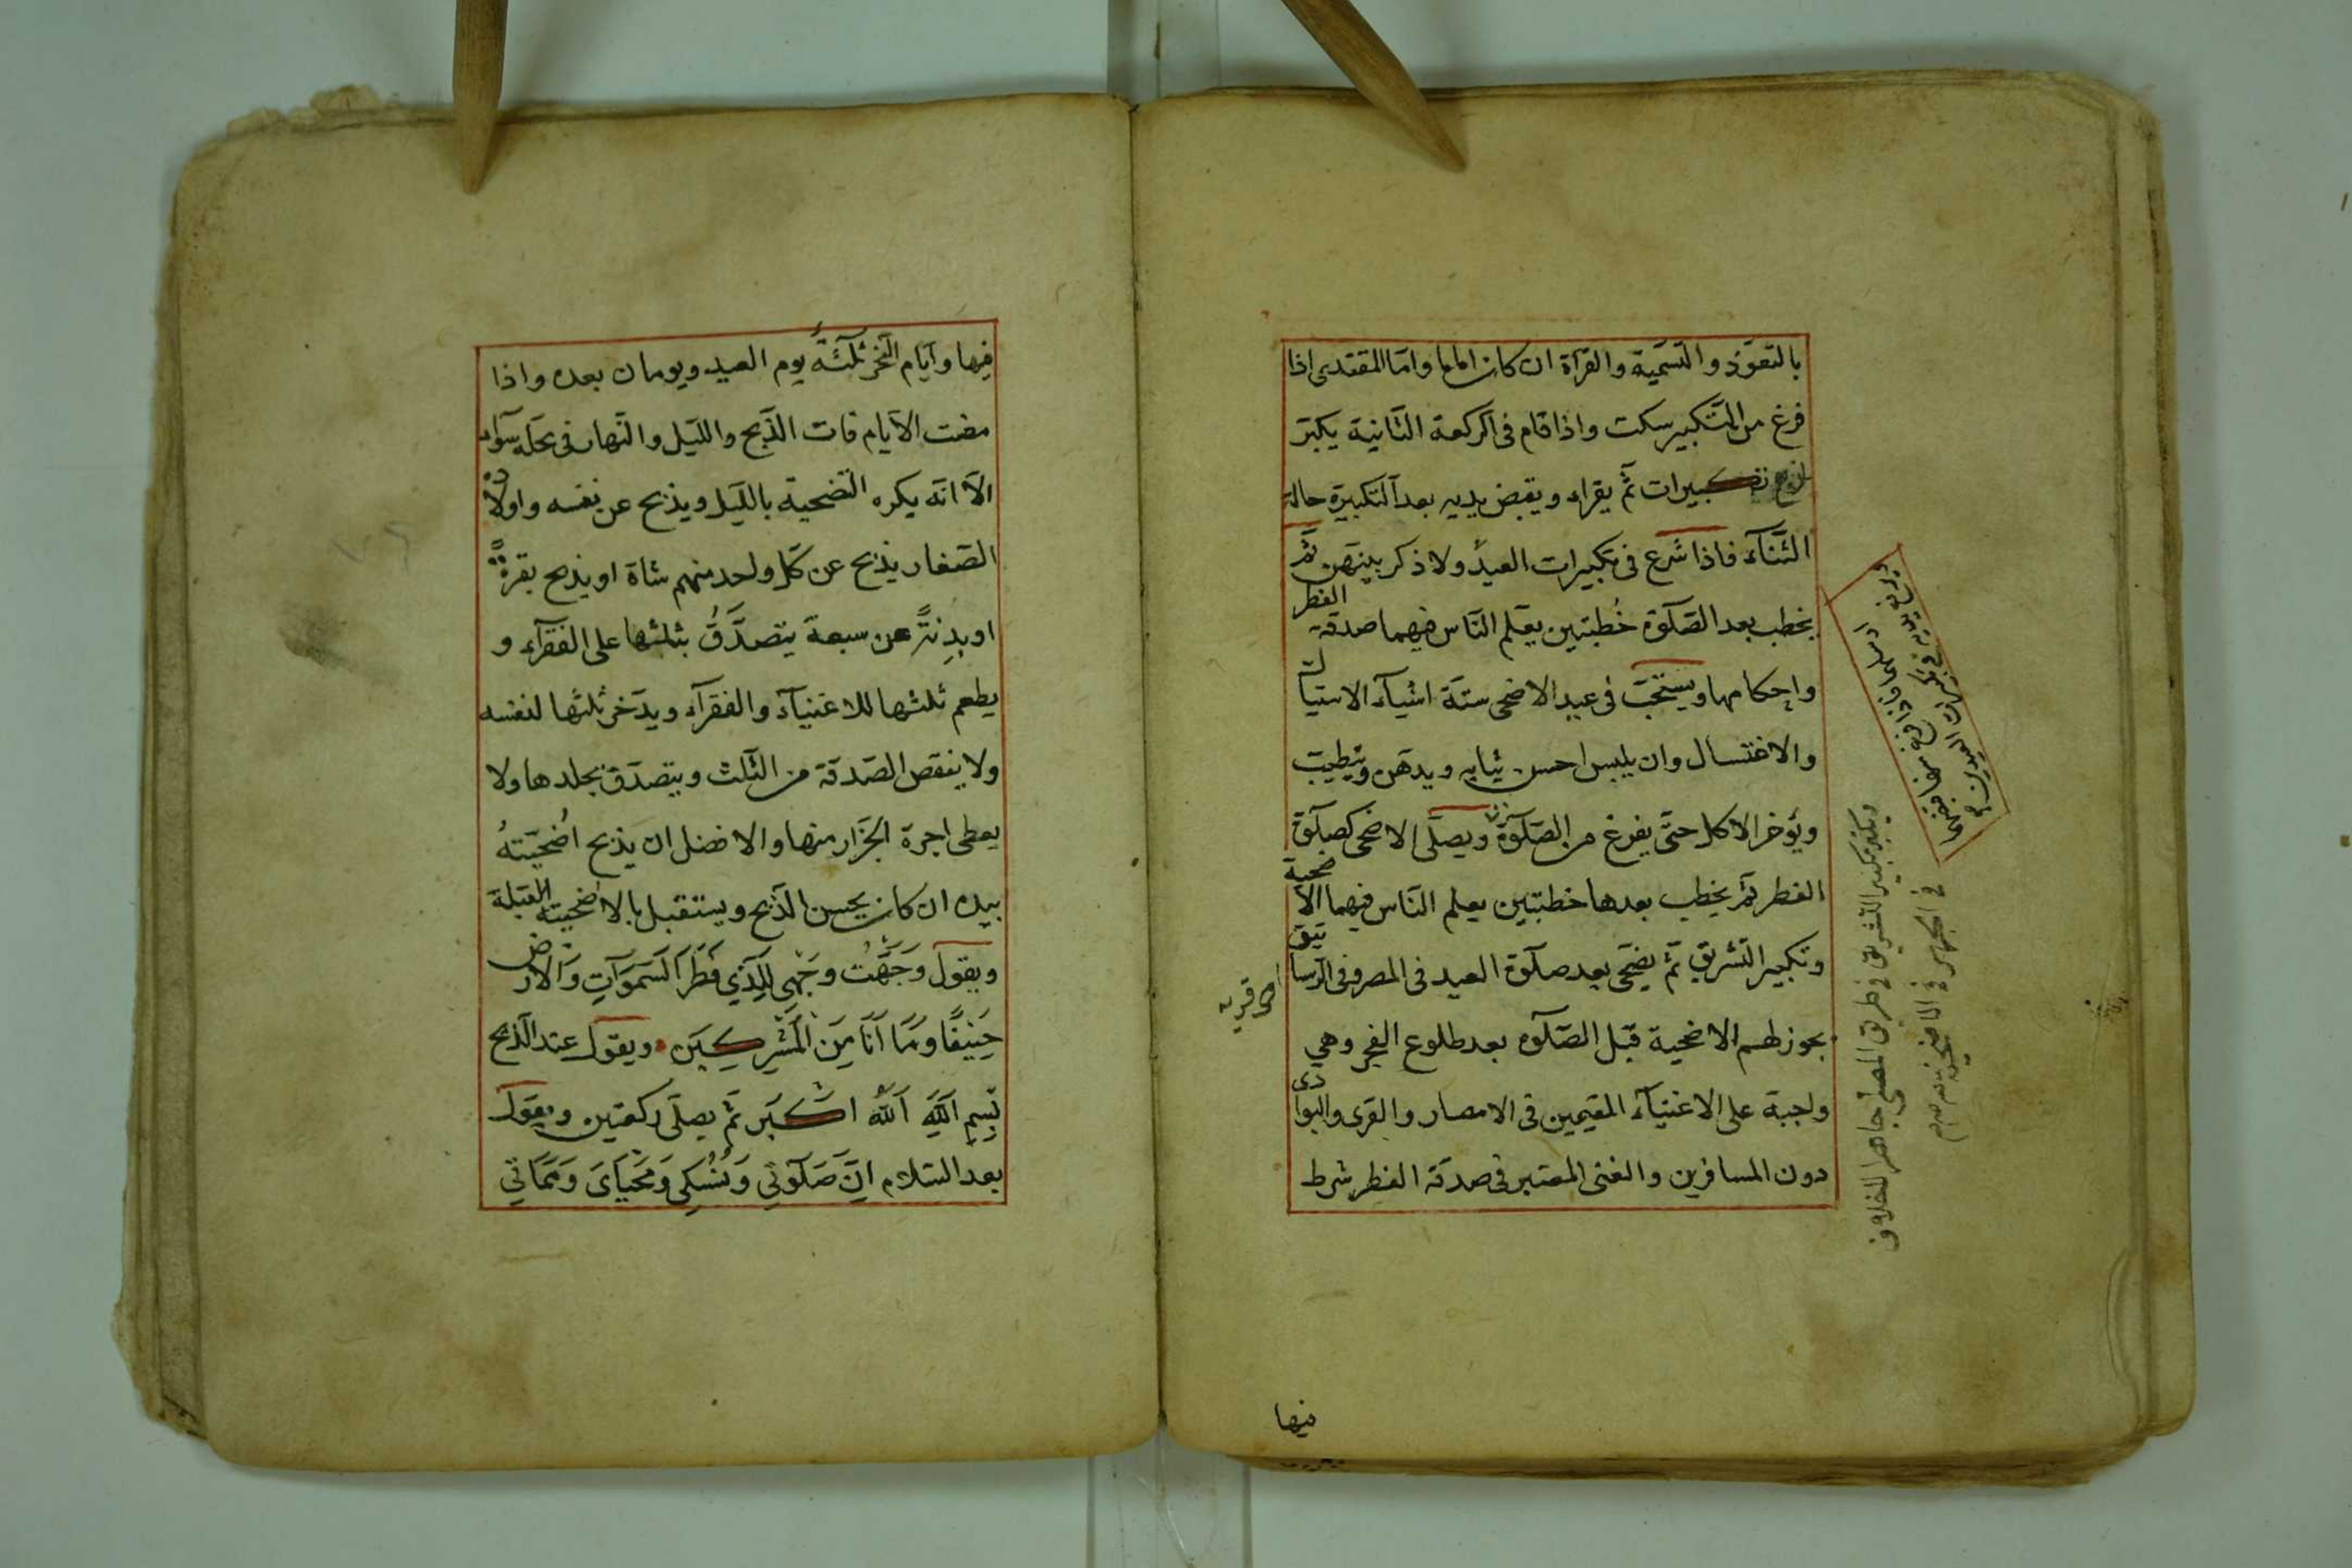 بالتعوّذ والتسمية والقرآة ان كان اماما وامّا المقتدى اذا
فرغ من التّكبير سكت واذا قام فى الركعة الثّانية يكبّر
تكبيرات ثمّ يقراء ويقبض يديه بعد التكبيرة حالة
الثّنآء فاذا شرع فى تكبيرات العيد ولا ذكر بينهن ثمّ
يخطب بعد الصّلٰوة خُطبتين يعلّم النّاس فيهما صدقة الفطر
واحكامها ويستحّب فى عيد الاضحى ستّة اشيآء الاستياك
والاغتسال وان يلبس احسن ثيابه ويدهن ويطيب
ويؤخر الاكل حتّى يفرغ من الصّلٰوة ويصلّى الاضحى كصلٰوة
الفطر ثمّ يخطب بعدها خطبتين يعلم النّاس فيهما الاضحية
وتكبير التّشريق ثمّ يضحّى بعد صلٰوة العيد فى المصر وفى الرّساتيق
يجوز لهم الاضحية قبل الصّلٰوه بعد طلوع الفجر وهى
واجبة على الاغنيآء المقيمين فى الامصار والقرى والبوادى
دون المسافرين والغنى المعتبر فى صدقة الفطر شرط
ويكبر تكبير التشريق فى طريق المصلى جاهرا
فيها
فيها وايّام النّحر ثلٰثة يوم العيد ويومان بعده واذا
مضت الايّام فات الذّبح واللّيل والنّهار فى محلّه سوآء
الّا انّه يكره التضحية باللّيل ويذبح عن نفسه واولاده
الصّغار يذبح عن كلّ واحد منهم شاة او يذبح بقرةً
او بدنةً عن سبعة يتصدّقُ بثلثها على الفقرآء و
يطعم ثلثها للاغنيآء والفقرآء ويدّخر ثلثها لنفسه
ولا ينقص الصّدقة من الثّلث ويتصدّق بجلدها ولا
يعطى اجرة الجزّار منها والافضل ان يذبح اُضحيّتهُ
بيده ان كان يحسن الذّبح ويستقبل بالاضحيّته القبلة
ويقول وَجَّهْتُ وَجْهِيَ لِلَّذِي فَطَرَ السَّمَوَاتِ وَالْاَرْضَ
حَنِيفًا وَمَا اَنَا مِنَ الْمُشْرِكِينَ ويقول عند الذّبح
بِسْمِ اللّٰهِ اَللّٰهُ اكْبَر ثمّ يصلّى ركعتين ويقول
بعد السّلام اِنَّ صَلٰوتِي وَنُسُكِي وَمَحْيَايَ وَمَمَاتِي